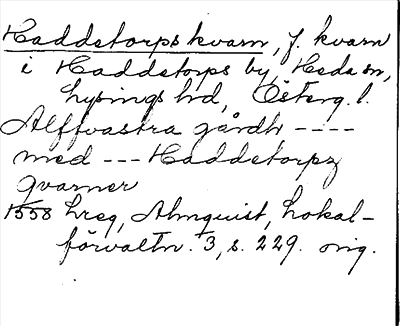 Haddetorps kvarn, f. kvarn
i Haddetorps by, Heda sn,
Lysings hd, Österg. l.
Alffvastra gårdh ----
med --- Haddetorpz
qvarner
1558 Lreg, Almquist, Lokal-
förvaltn. 3, s. 229. orig.